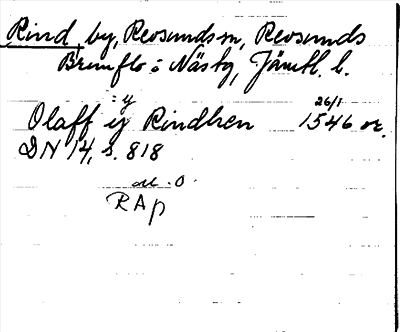 Rind by, Revsunds sn, Revsunds
Brunflo o Näsby, Jämtl. l.
: y 26/1
Olaff ij Rindhen 1546 or.
DN 14, s. 818
RAp